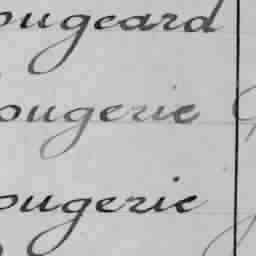 ougeard
ougerie
ougerie